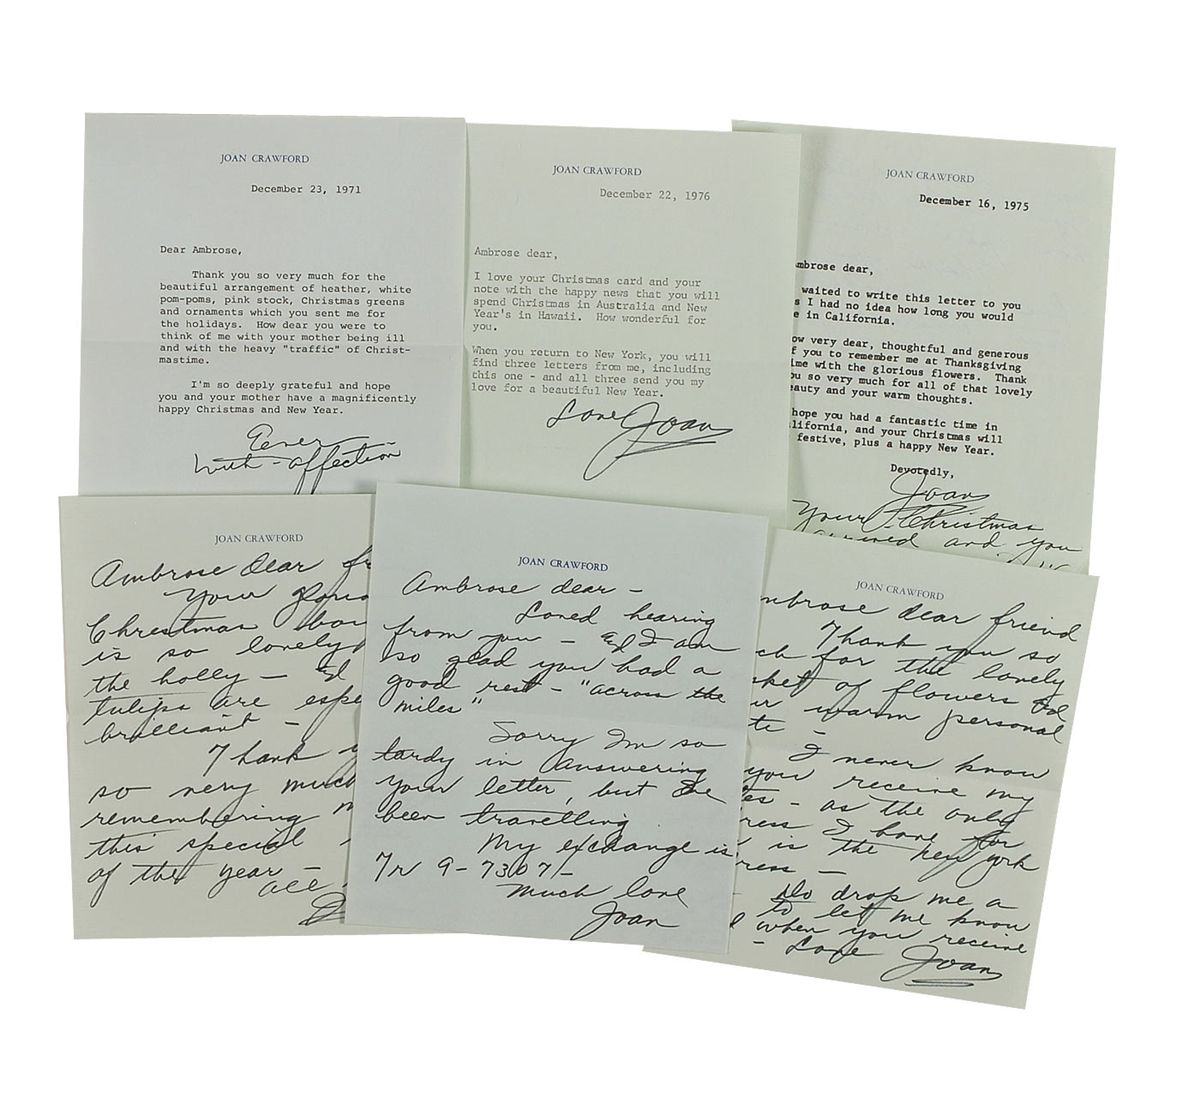 JOAN CRAWFORD
December 23, 1971
Dear Ambrose,
Thank you so very much for the
beautiful arrangement of heather, white
pom-poms, pink stock, Christmas greens
and ornaments which you sent me for
the holidays. How dear you were to
think of me with your mother being ill
and with the heavy "traffic" of Christ-
mastime.
I'm so deeply grateful and hope
you and your mother have a magnificently
happy Christmas and New Year.
Ever
with - affection
JOAN CRAWFORD
December 22, 1976
Ambrose dear,
I love your Christmas card and your
note with the happy news that you will
spend Christmas in Australia and New
Year's in Hawaii. How wonderful for
you.
When you return to New York, you will
find three letters from me, including
this one - and all three send you my
love for a beautiful New Year.
Love Joan
JOAN CRAWFORD
December 16, 1975
mbrose dear,
waited to write this letter to you
s I had no idea how long you would
e in California.
ow very dear, thoughtful and generous
f you to remember me at Thanksgiving
ime with the glorious flowers. Thank
ou so very much for all of that lovely
eauty and your warm thoughts.
hope you had a fantastic time in
lifornia, and your Christmas will
festive, plus a happy New Year.
Devotedly,
Joan
Your Christmas
arrived and you
JOAN CRAWFORD
Ambrose dear fr
Your glorio
Christmas
is so lovely
the holly - &
tulips are espe
brilliant -
Thank y
so very much
remembering m
this special
of the year -
all
JOAN CRAWFORD
Ambrose dear -
Loved hearing
from you - & I am
so glad you had a
good rest - "across the
miles"
Sorry Im so
tardy in answering
your letter, but Ive
been travelling.
My exchange is
Tr 9-7307-
Much love
Joan
JOAN CRAWFORD
mbrose dear friend
Thank you so
ch for the lovely
sket of flowers &
ur warm personal
te -
I never know
you receive my
es - as the only
ress I have for
is the New York
ress -
Do drop me a
to let me know
when you receive
- Love Joan